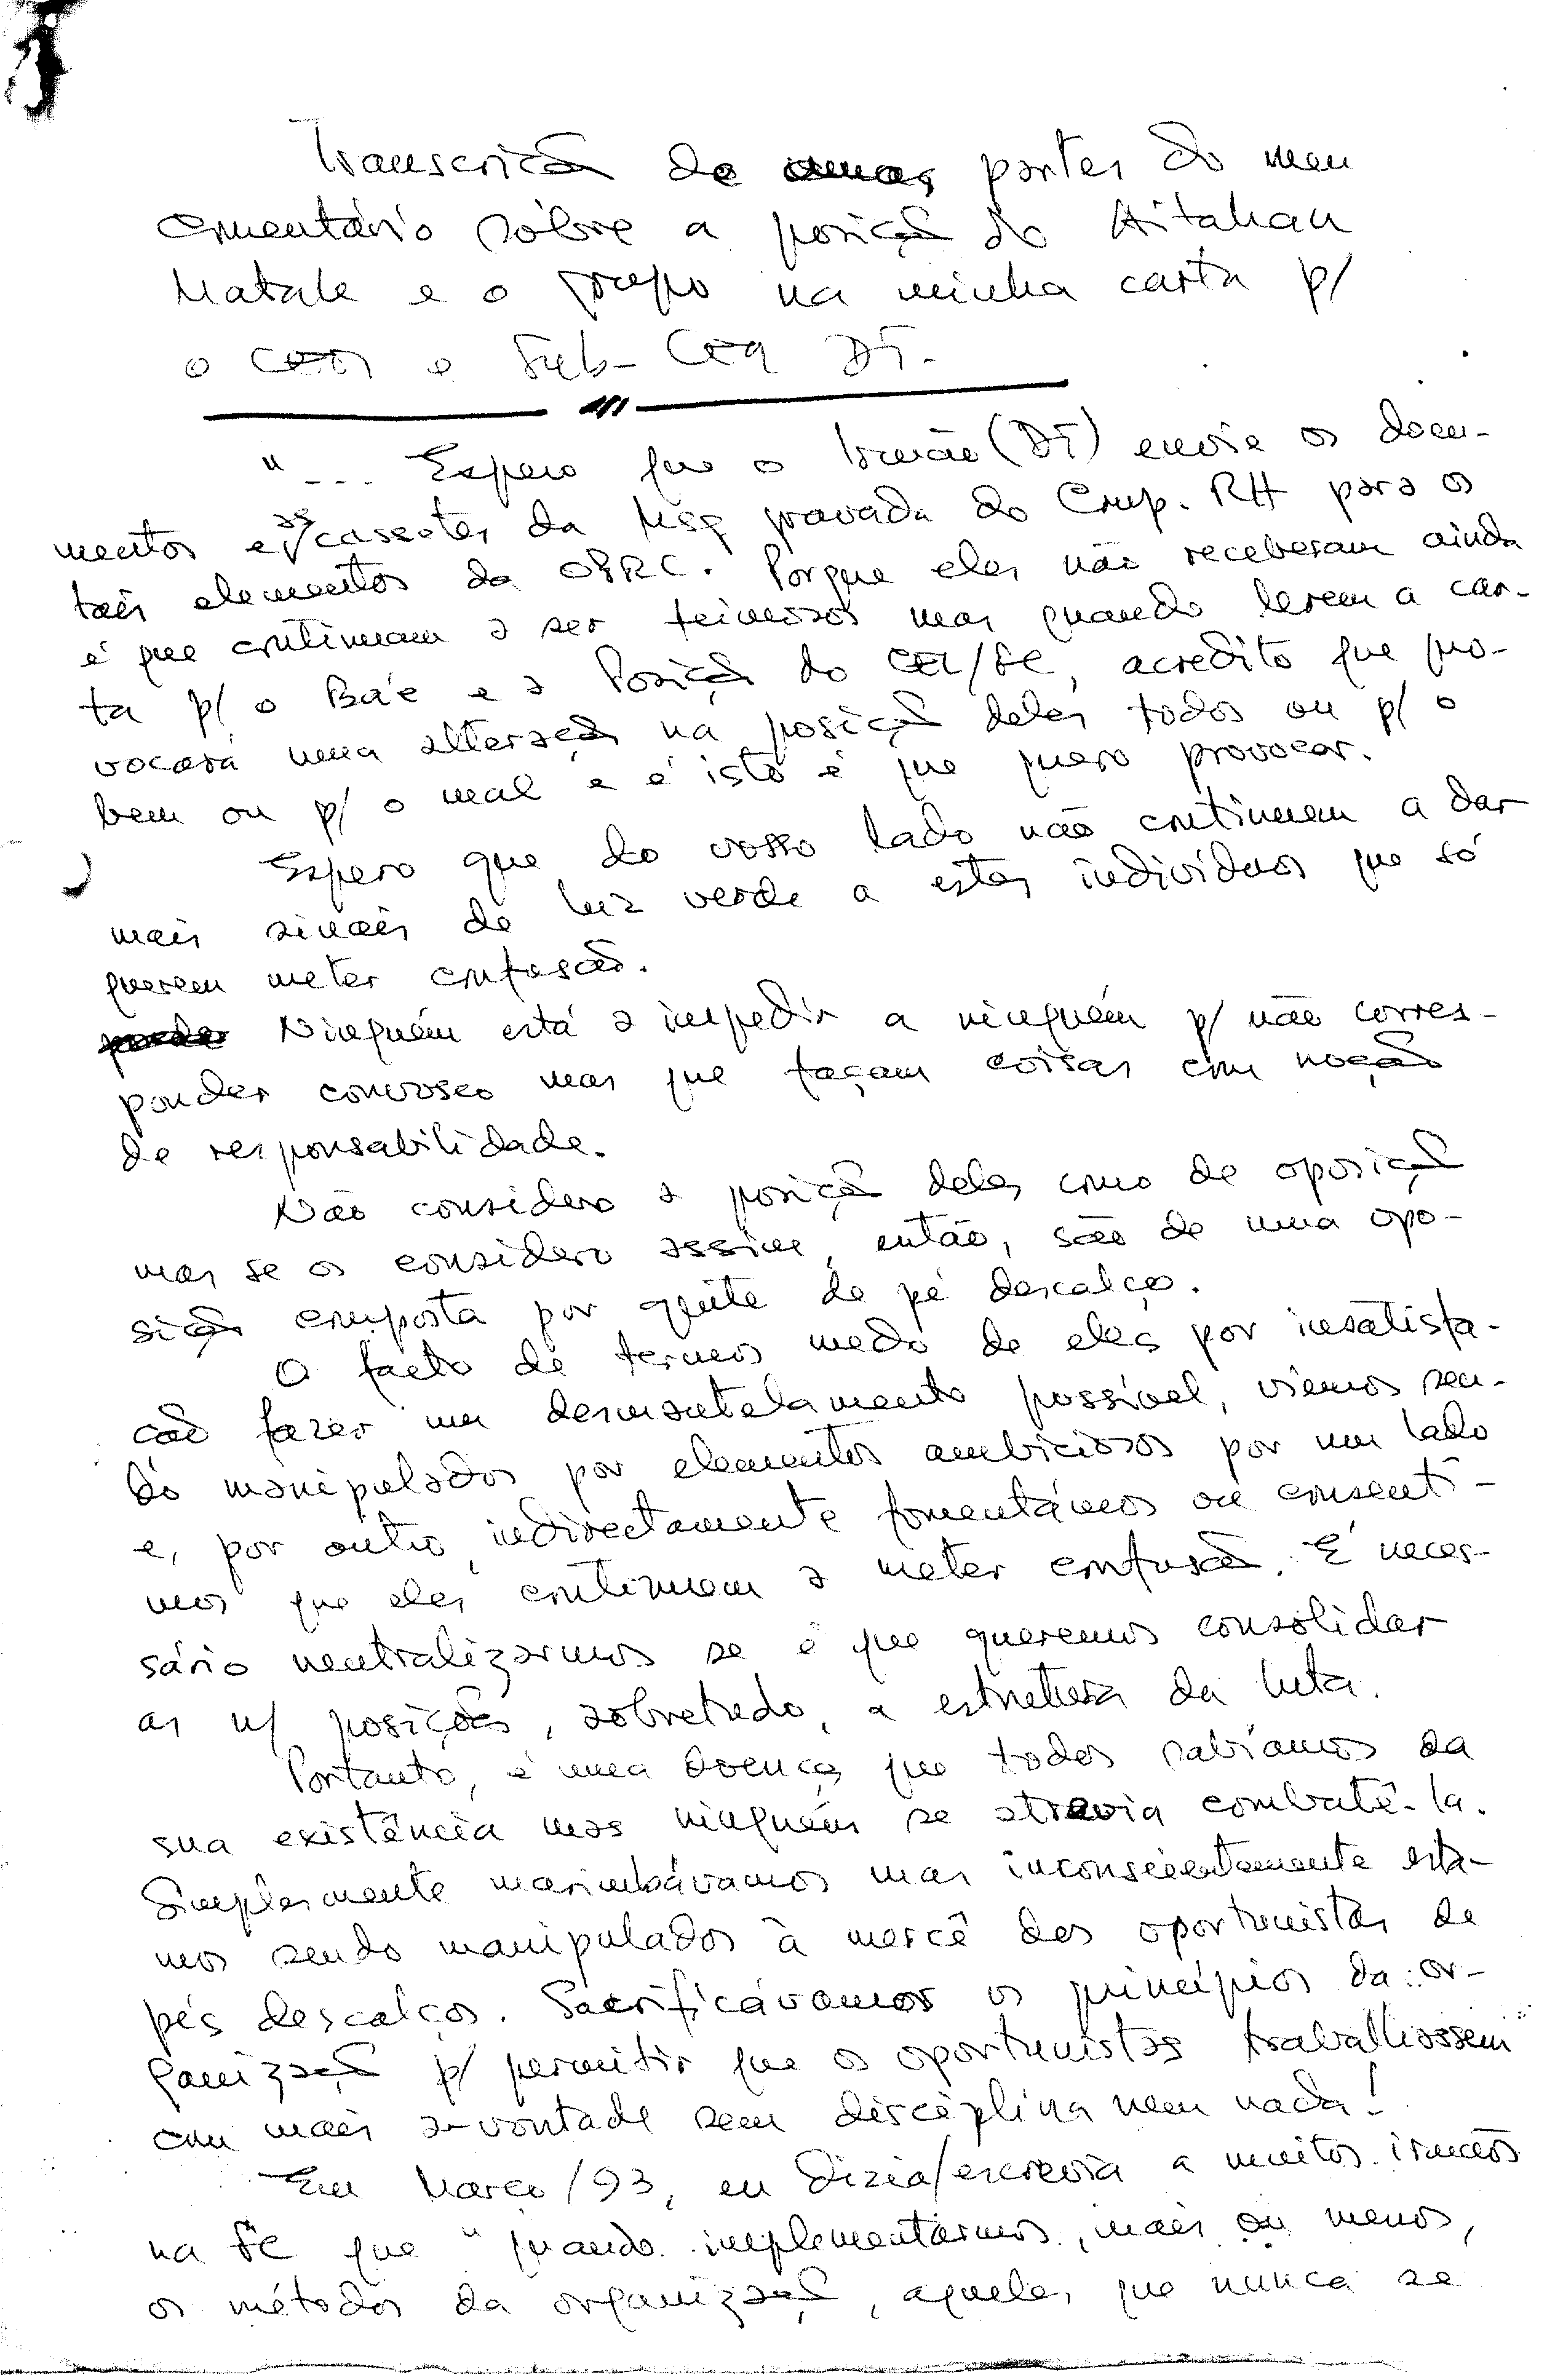 Transcrição de umas partes do meu
comentário sôbre a posição do Aitahan
Matale e o grupo na minha carta p/
o CEL e Sub-Ceq DT.
"... Espero que o Irmão (DT) envie os docu-
mentos e as cassetes da Msg gravada do Comp. RH para os
tais elementos da OPRC. Porque eles não receberam ainda
é que continuam a ser teimosos mas quando lerem a car-
ta p/ o Baé e a Posição do CEL/FE, acredito que pro-
vocará uma alteração na posição deles todos ou p/ o
bem ou p/ o mal e é isto é que quero provocar.
Espero que do vosso lado não continuem a dar
mais sinais de luz verde a estes indivíduos que só
querem meter confusão.
Ninguém está a impedir a ninguém p/ não corres-
ponder convosco mas que façam coisas com noção
de responsabilidade.
Não considero a posição deles como de oposição
mas se os considero assim, então, são de uma opo-
sição composta por gente de pé descalço.
O facto de termos medo de eles por insatisfa-
ção fazer um desmantelamento possível, viemos sen-
do manipulados por elementos ambiciosos por um lado
e, por outro, indirectamente fomentámos ou consenti-
mos que eles continuem a meter confusão. É neces-
sário neutralizarmos se é que queremos consolidar
as n/ posições, sobretudo, a estrutura da luta.
Portanto, é uma doença que todos sabíamos da
sua existência mas ninguém se atrevia combatê-la.
Simplesmente marimbávamos mas inconscientemente esta-
mos sendo manipulados à mercê dos oportunistas de
pés descalços. Sacrificávamos os princípios da or-
ganização p/ permitir que os oportunistas trabalhassem
com mais à-vontade sem disciplina nem nada!
Em Março/93, eu dizia/escrevia a muitos irmãos
na FE que "quando implementarmos, mais ou menos,
os métodos da organização, aqueles que nunca se